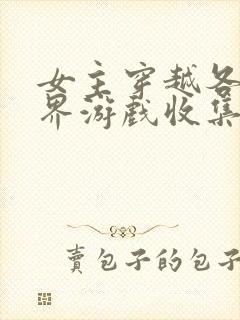 女主穿越各
界游戏收集
賣包子的包子